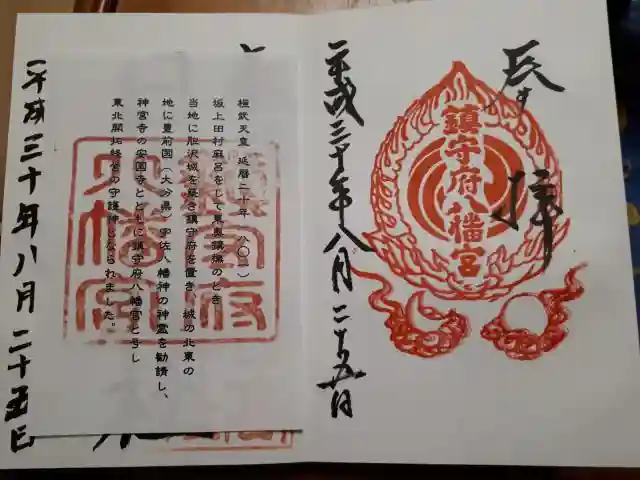 奉拝
鎮守府八幡宮
平成三十年八月二十五日
桓武天皇 延暦二十年(八〇一)
坂上田村麻呂をして東奥鎮撫のとき
当地に胆沢城を築き鎮守府を置き 城の北東の
地に豊前国(大分県)宇佐八幡神の神霊を勧請し、
神宮寺の安国寺とともに鎮守府八幡宮と号し
東北開拓経営の守護神となられました。
鎮守府
八幡宮
平成三十年八月二十五日